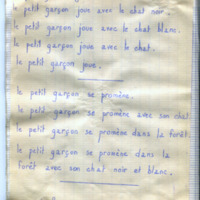 le petit garçon joue avec le chat noir.
le petit garçon joue avec le chat blanc.
le petit garçon joue avec le chat.
le petit garçon joue.
le petit garçon se promène.
le petit garçon se promène avec son chat
le petit garçon se promène dans la forêt
le petit garçon se promène dans la
forêt avec son chat noir et blanc.